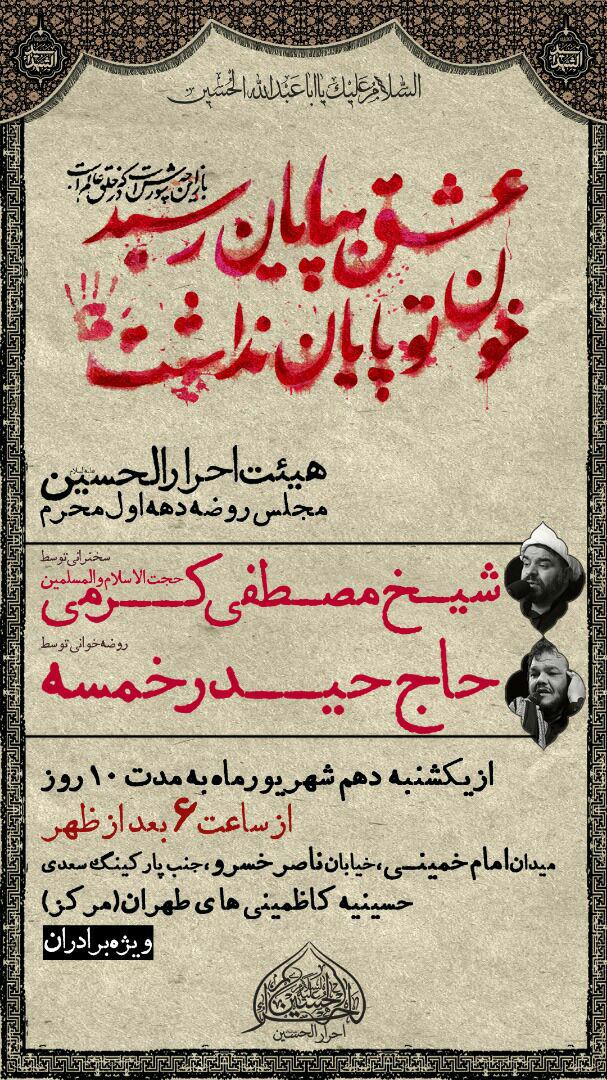 السلام علیک یا اباعبدالله الحسین
باز این چه شورش است که در خلق عالم است
عشق بپایان رسید
خون تو پایان نداشت
هیئت احرار الحسین علیه‌السلام
مجلس روضه دهه اول محرم
سخنرانی توسط
حجت الاسلام والمسلمین
شیخ مصطفی کرمی
روضه خوانی توسط
حاج حیدر خمسه
از یکشنبه دهم شهریور ماه به مدت ۱۰ روز
از ساعت ۶ بعد از ظهر
میدان امام خمینی، خیابان ناصر خسرو، جنب پارکینگ سعدی
حسینیه کاظمینی های طهران (مرکز)
ویژه برادران
احرار الحسین